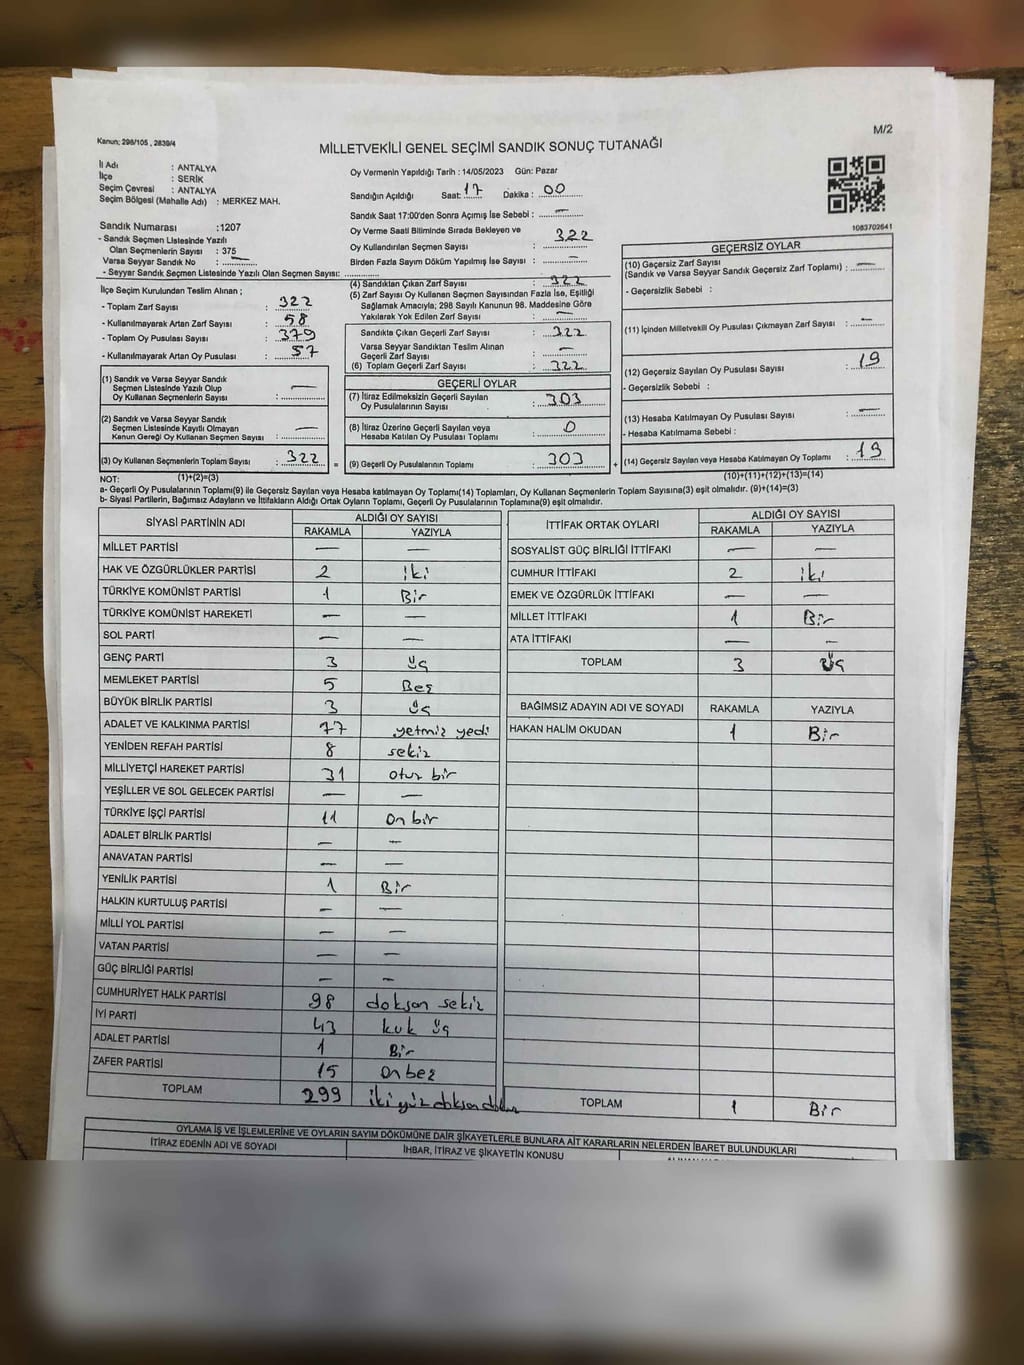 M/2
Kanun; 298/105 , 2839/4
MİLLETVEKİLİ GENEL SEÇİMİ SANDIK SONUÇ TUTANAĞI
1083702641
İl Adı : ANTALYA
İlçe : SERİK
Seçim Çevresi : ANTALYA
Seçim Bölgesi (Mahalle Adı) : MERKEZ MAH.
Sandık Numarası :1207
- Sandık Seçmen Listesinde Yazılı
Olan Seçmenlerin Sayısı : 375
Varsa Seyyar Sandık No : —
- Seyyar Sandık Seçmen Listesinde Yazılı Olan Seçmen Sayısı:
Oy Vermenin Yapıldığı Tarih : 14/05/2023 Gün: Pazar
Sandığın Açıldığı Saat: 17 Dakika : 00
Sandık Saat 17:00'den Sonra Açımış İse Sebebi : —
Oy Verme Saati Bitiminde Sırada Bekleyen ve
Oy Kullandırılan Seçmen Sayısı : 322
Birden Fazla Sayım Döküm Yapılmış İse Sayısı : —
İlçe Seçim Kurulundan Teslim Alınan ;
- Toplam Zarf Sayısı : 322
- Kullanılmayarak Artan Zarf Sayısı : 58
- Toplam Oy Pusulası Sayısı : 379
- Kullanılmayarak Artan Oy Pusulası : 57
(1) Sandık ve Varsa Seyyar Sandık
Seçmen Listesinde Yazılı Olup
Oy Kullanan Seçmenlerin Sayısı : —
(2) Sandık ve Varsa Seyyar Sandık
Seçmen Listesinde Kayıtlı Olmayan
Kanun Gereği Oy Kullanan Seçmen Sayısı : —
(3) Oy Kullanan Seçmenlerin Toplam Sayısı : 322
(1)+(2)=(3)
(4) Sandıktan Çıkan Zarf Sayısı : 322
(5) Zarf Sayısı Oy Kullanan Seçmen Sayısından Fazla İse, Eşitliği
Sağlamak Amacıyla; 298 Sayılı Kanunun 98. Maddesine Göre
Yakılarak Yok Edilen Zarf Sayısı : —
Sandıkta Çıkan Geçerli Zarf Sayısı : 322
Varsa Seyyar Sandıktan Teslim Alınan
Geçerli Zarf Sayısı : —
(6) Toplam Geçerli Zarf Sayısı : 322
GEÇERLİ OYLAR
(7) İtiraz Edilmeksizin Geçerli Sayılan
Oy Pusulalarının Sayısı : 303
(8) İtiraz Üzerine Geçerli Sayılan veya
Hesaba Katılan Oy Pusulası Toplamı : 0
= (9) Geçerli Oy Pusulalarının Toplamı : 303 +
GEÇERSİZ OYLAR
(10) Geçersiz Zarf Sayısı
(Sandık ve Varsa Seyyar Sandık Geçersiz Zarf Toplamı) : —
- Geçersizlik Sebebi :
(11) İçinden Milletvekili Oy Pusulası Çıkmayan Zarf Sayısı : —
(12) Geçersiz Sayılan Oy Pusulası Sayısı : 19
- Geçersizlik Sebebi :
(13) Hesaba Katılmayan Oy Pusulası Sayısı : —
- Hesaba Katılmama Sebebi :
(14) Geçersiz Sayılan veya Hesaba Katılmayan Oy Toplamı : 19
(10)+(11)+(12)+(13)=(14)
NOT:
a- Geçerli Oy Pusulalarının Toplamı(9) ile Geçersiz Sayılan veya Hesaba katılmayan Oy Toplamı(14) Toplamları, Oy Kullanan Seçmenlerin Toplam Sayısına(3) eşit olmalıdır. (9)+(14)=(3)
b- Siyasi Partilerin, Bağımsız Adayların ve İttifakların Aldığı Ortak Oyların Toplamı, Geçerli Oy Pusulalarının Toplamına(9) eşit olmalıdır.
SİYASİ PARTİNİN ADI ALDIĞI OY SAYISI
RAKAMLA YAZIYLA
MİLLET PARTİSİ — —
HAK VE ÖZGÜRLÜKLER PARTİSİ 2 iki
TÜRKİYE KOMÜNİST PARTİSİ 1 Bir
TÜRKİYE KOMÜNİST HAREKETİ — —
SOL PARTİ — —
GENÇ PARTİ 3 üç
MEMLEKET PARTİSİ 5 Beş
BÜYÜK BİRLİK PARTİSİ 3 üç
ADALET VE KALKINMA PARTİSİ 77 yetmiz yedi
YENİDEN REFAH PARTİSİ 8 sekiz
MİLLİYETÇİ HAREKET PARTİSİ 31 otuz bir
YEŞİLLER VE SOL GELECEK PARTİSİ — —
TÜRKİYE İŞÇİ PARTİSİ 11 on bir
ADALET BİRLİK PARTİSİ — —
ANAVATAN PARTİSİ — —
YENİLİK PARTİSİ 1 Bir
HALKIN KURTULUŞ PARTİSİ — —
MİLLİ YOL PARTİSİ — —
VATAN PARTİSİ — —
GÜÇ BİRLİĞİ PARTİSİ — —
CUMHURİYET HALK PARTİSİ 98 doksan sekiz
İYİ PARTİ 43 kırk üç
ADALET PARTİSİ 1 Bir
ZAFER PARTİSİ 15 on beş
TOPLAM 299 iki yüz doksan dokuz
İTTİFAK ORTAK OYLARI ALDIĞI OY SAYISI
RAKAMLA YAZIYLA
SOSYALİST GÜÇ BİRLİĞİ İTTİFAKI — —
CUMHUR İTTİFAKI 2 iki
EMEK VE ÖZGÜRLÜK İTTİFAKI — —
MİLLET İTTİFAKI 1 Bir
ATA İTTİFAKI — —
TOPLAM 3 üç
BAĞIMSIZ ADAYIN ADI VE SOYADI RAKAMLA YAZIYLA
HAKAN HALİM OKUDAN 1 Bir
TOPLAM 1 Bir
OYLAMA İŞ VE İŞLEMLERİNE VE OYLARIN SAYIM DÖKÜMÜNE DAİR ŞİKAYETLERLE BUNLARA AİT KARARLARIN NELERDEN İBARET BULUNDUKLARI
İTİRAZ EDENİN ADI VE SOYADI İHBAR, İTİRAZ VE ŞİKAYETİN KONUSU